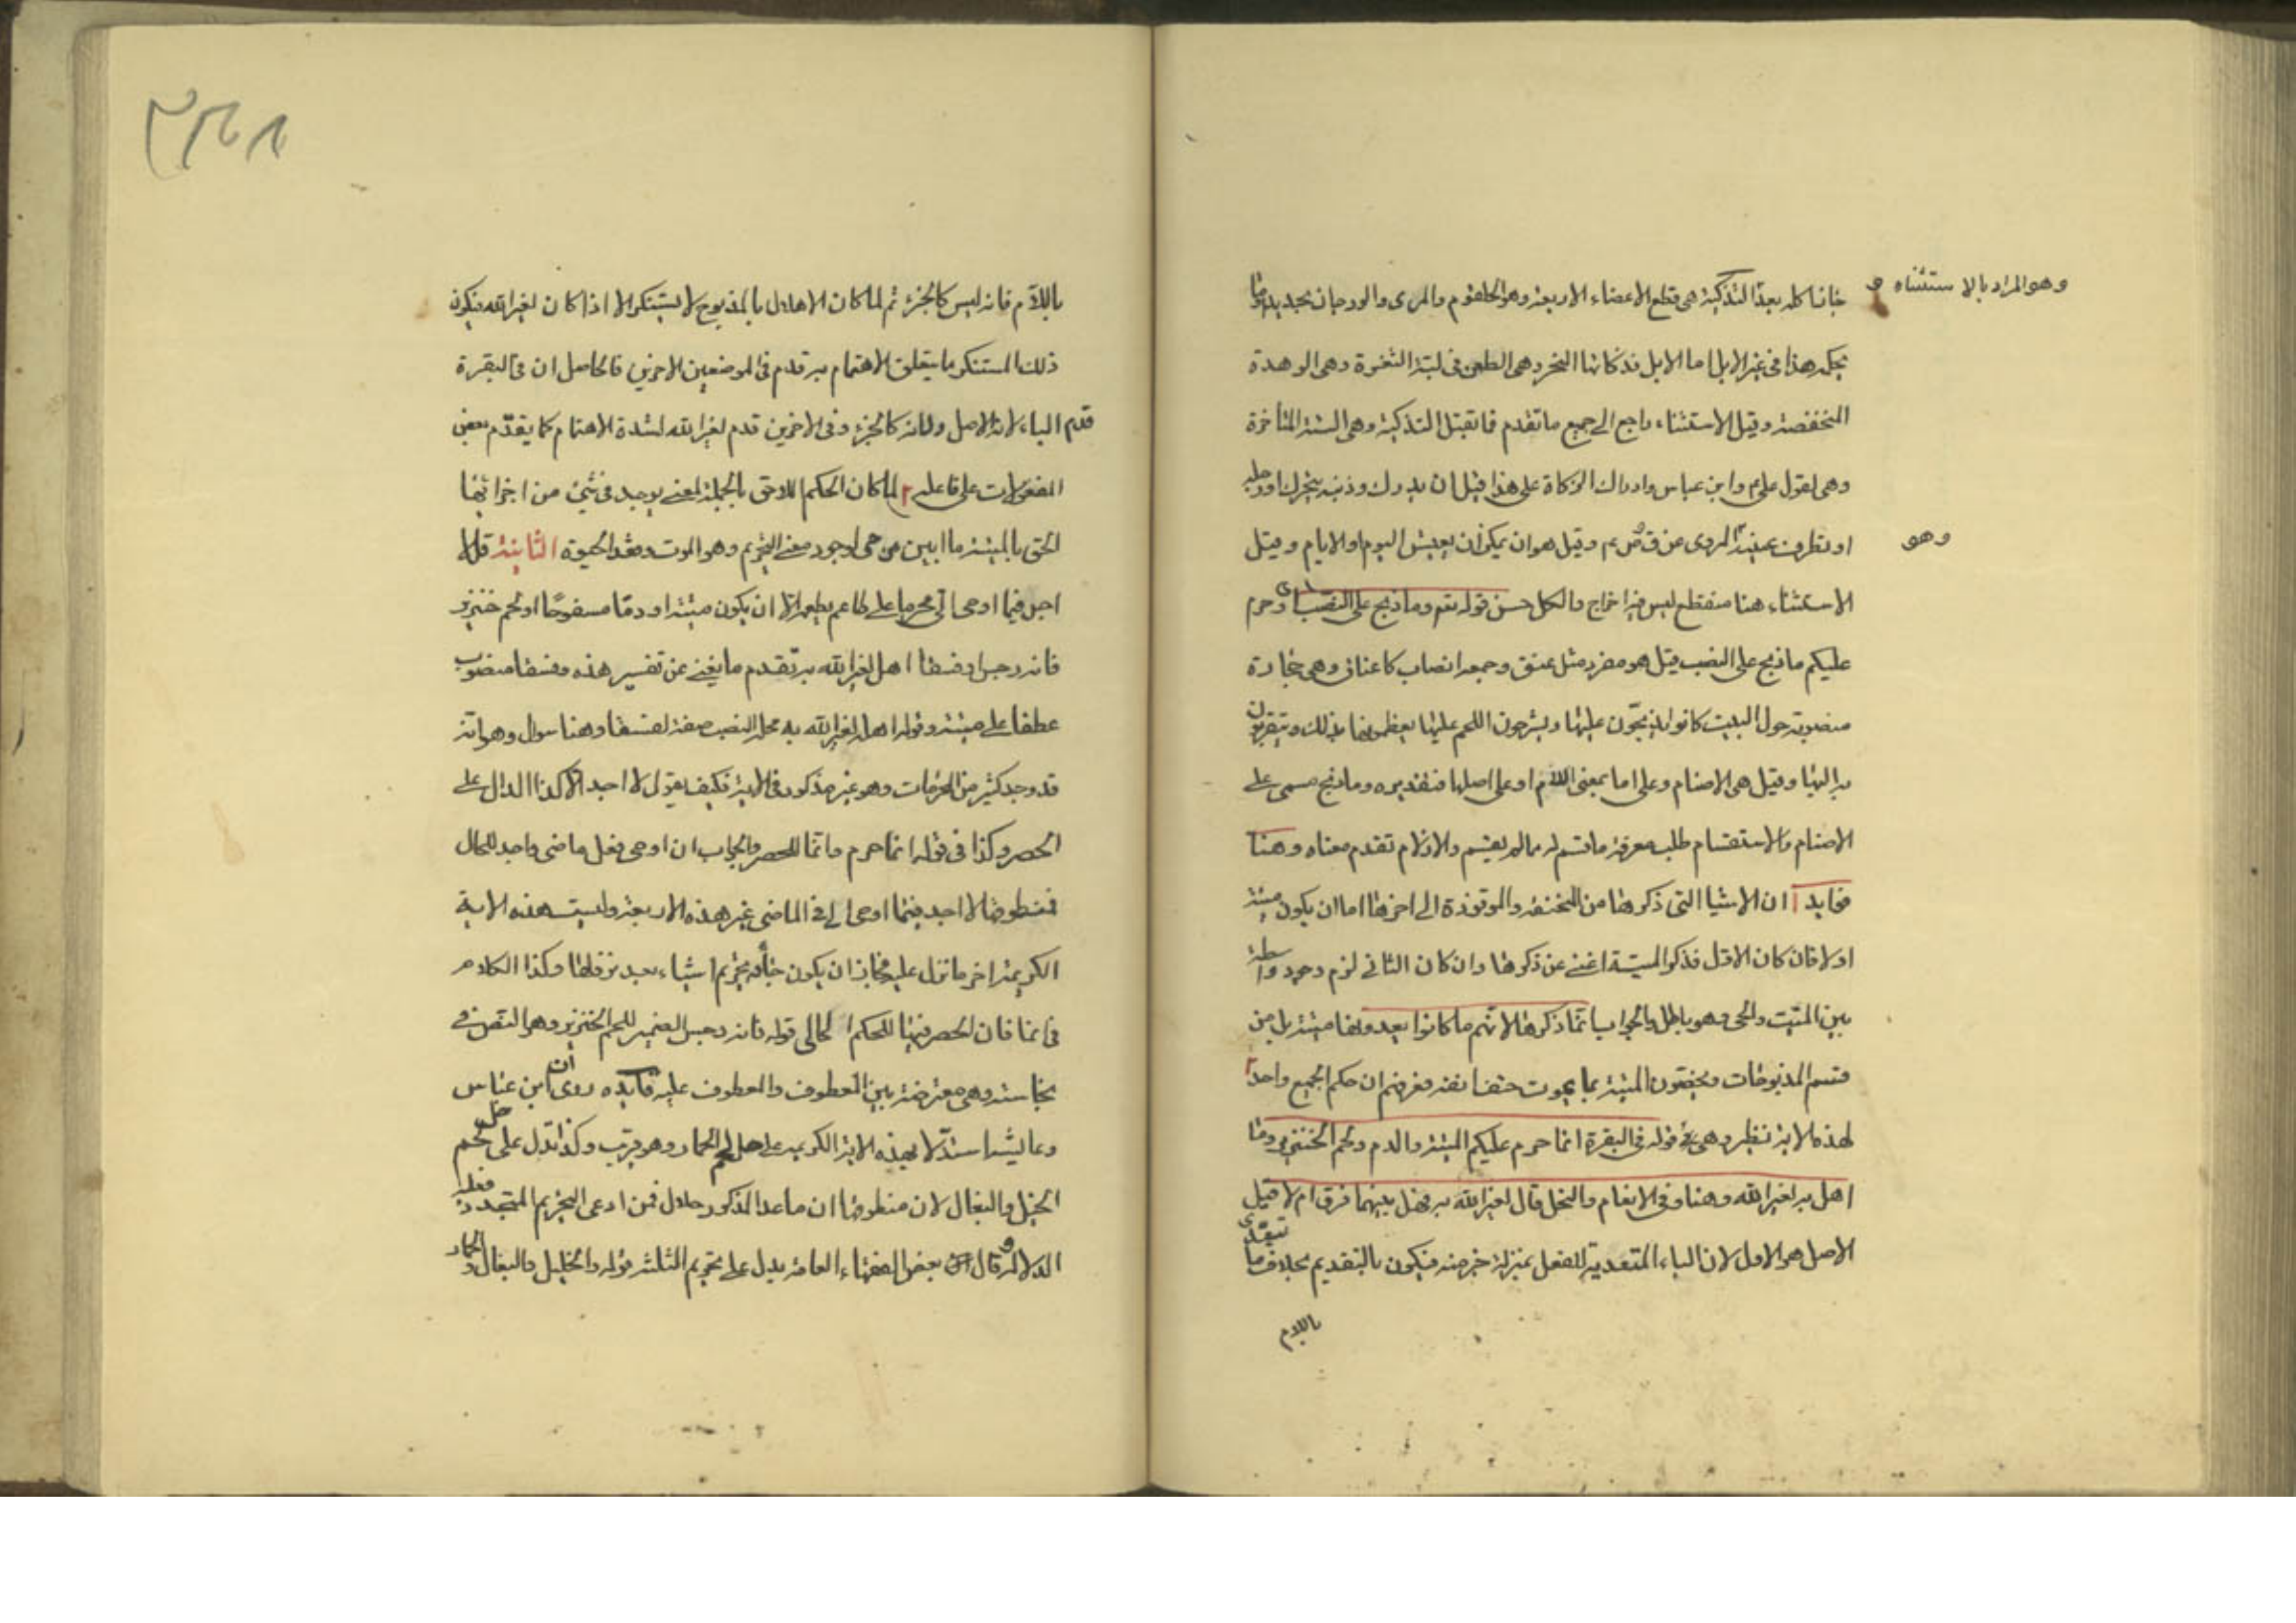 وهو المراد بالاستثناء و
خانا كله بعد التذكية هى قطع الاعضاء الاربعة وهو الحلقوم والمرى والودجان بحديد وما
بحكمه هذا فى غير الابل اما الابل فذكاتها النحر وهى الطعن فى لبته الثغرة وهى الوهدة
المنخفضة وقيل الاستثناء راجع الى جميع ما تقدم فاتقبل التذكية وهى الستة المتأخرة
وهى لقول على م وابن عباس وادراك الزكاة على هذا قيل ان يدرك وذنبه يتحرك او رجله
او تطرف عينه المروى عن ق ص م وقيل هو ان يمكن ان يعيش اليوم او الايام وقيل
وهو
الاستثناء هنا منقطع ليس فيه اخراج والكل حسن قوله تعم وما ذبح على النصب اى وحرم
عليكم ما ذبح على النصب قيل هو مفرد مثل عنق وجمعه انصاب كاعناق وهى حجارة
منصوبة حول البيت كانوا يذبحون عليها ويشرحون اللحم عليها يعظمونها بذلك ويتقربون
به اليها وقيل هى الاصنام وعلى اما بمعنى اللام او على اصلها فتقديره وما ذبح مسمى على
الاصنام والاستقسام طلب معرفة ما قسم له مما لم يقسم والازلام تقدم معناه وهنا
فوايد ا ان الاشيا التى ذكرها من المنخنقة والموقوذة الى اخرها اما ان يكون ميتة
اولا فان كان الاول فذكر الميتة اغنى عن ذكرها وان كان الثانى لزم وجود واسطة
بين الميت والحى وهو باطل والجواب انما ذكرها لانهم ما كانوا يعدونها ميتة بل من
قسم المذبوحات ويخصون الميتة بما يموت حتف انفه فعرفهم ان حكم الجميع واحد
لهذه الاية نظير وهى فى قوله فى البقرة انما حرم عليكم الميتة والدم ولحم الخنزير وما
اهل به لغير الله وهنا وفى الانعام والنحل قال لغير الله به فهل بينهما فرق ام لا قيل
الاصل هو الاول لان الباء المتعدية للفعل بمنزلة جزء منه فيكون بالتقديم بخلاف ما تعدى
باللام
باللام فانه ليس كالجزء ثم لما كان الاهلال بالمذبوح لا يستنكر الا اذا كان لغير الله فيكون
ذلك المستنكر ما يتعلق الاهتمام به قدم فى الموضعين الاخرين فالحاصل ان فى البقرة
قدم الباء لانه الاصل ولانه كالجزء وفى الاخرين قدم لغير الله لشدة الاهتمام كما يقدم بعض
المفعولات على فاعله لما كان الحكم اللاحق بالجملة لمعنى يوجد فى شئ من اجزائها
الحق بالميتة ما ابين من حى لوجود معنى التحريم وهو الموت وفقد الحيوة الثانية قل لا
اجد فيما اوحى الى محرما على طاعم يطعمه الا ان يكون ميتة او دما مسفوحا او لحم خنزير
فانه رجس او فسقا اهل لغير الله به تقدم ما يغنى عن تفسير هذه وفسقا منصوب
عطفا على ميتة وقوله اهل لغير الله به محله النصب صفة لفسقا وهنا سوال وهو انه
قد وجد كثير من المحرمات وهو غير مذكور فى الاية فكيف يقول لا اجد الا كذا الدال على
الحصر وكذا فى قوله انما حرم وانما للحصر والجواب ان اوحى فعل ماضى واجد للحال
فمنطوقها لا اجد فيما اوحى الى فى الماضى غير هذه الاربعة وليست هذه الاية
الكريمة اخر ما نزل عليه فجاز ان يكون جاءه تحريم اشياء بعد نزولها وكذا الكلام
فى انما فان الحصر فيها للحكم الحالى قوله فانه رجس الضمير للحم الخنزير وهو النص فى
نجاسته وهى معترضة بين المعطوف والمعطوف عليه فايده روى ان ابن عباس
وعايشة استدلا بهذه الاية الكريمه على حل لحم الحمار وهو قريب وكذا تدل على حل لحم
الخيل والبغال لان منطوقها ان ما عدا المذكور حلال فمن ادعى التحريم المتجدد فعليه
الدلالة وقال بعض الفقهاء العامة يدل على تحريم الثلثة قوله والخيل والبغال والحمار